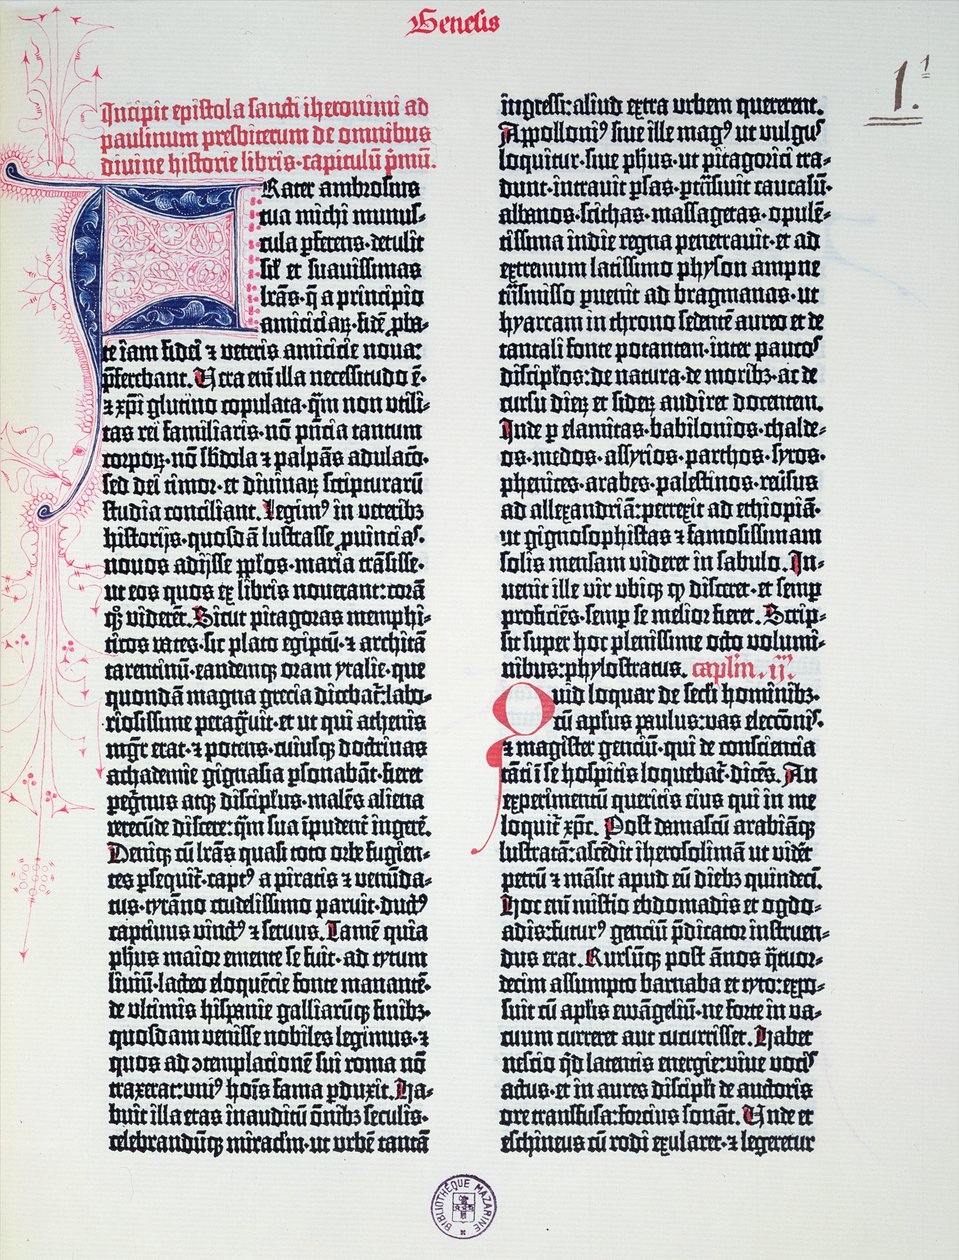 Genesis
1. 1
Incipit epistola sancti iheronimi ad
paulinum presbiterum de omnibus
divine historie libris·capitulū p̄mū.
FRater ambrosius
tua michi munus-
cula p̄ferens·detulit
sił et suavissimas
lr̄as·q̄ a principio
amiciciaꝝ·fidē ꝓba-
te iam fidei ⁊ veteris amicicie noua:
p̄ferebant. Uera eni̅ illa necessitudo ē·
⁊ xp̄i glutino copulata·q̄m non vtili-
tas rei familiaris·nō p̄ncia tantum
corpoꝝ·nō sb̄dola ⁊ palpās adulacō·
sed dei timor·et divinaꝝ scripturarū
studia conciliant. Legimꝰ in veteribꝫ
historijs·quosdā lustrasse ꝓuīcias·
nouos adijsse pp̄los·maria trāsisse·
ut eos quos ex libris nouerant: corā
qꝫ viderēt. Sicut pitagoras memphi-
ticos vates·sic plato egiptū·⁊ architā
tarentinū·eandemqꝫ oram ytalie·que
quondā magna grecia dicebat̄: labo-
riosissime peragͣuit·et ut qui athenis
mgr̄ erat·⁊ potens·cuiusqꝫ doctrinas
achademie gignasia ꝑsonabāt·fieret
pegͥnus atqꝫ discipl̄us·malēs aliena
verecūde discere: q̄m sua īpudent̄ ingerē.
Deniqꝫ cū lr̄as quasi toto orbe fugien-
tes ꝑsequit̄·captꝰ a piratis ⁊ venūda-
tus·tyrāno crudelissimo paruit·ductꝰ
captiuus vinctꝰ ⁊ seruus. Tamē quia
ph̄us maior emente se fuit·ad tytum
liuiū·lacteo eloquēcie fonte manantē·
de vltimis hispanie galliarūqꝫ finibꝫ·
quosdam venisse nobiles legimus·⁊
quos ad ꝯtemplacionē sui roma nō
traxerat: uniꝰ hoīs fama ꝑduxit. Ha-
buit illa etas inauditū om̄ibꝫ seculis·
celebrandūqꝫ miraclm̄·ut urbē tantā
ingressi: aliud extra urbem quererent.
Appolloniꝰ siue ille magꝰ ut vulgus
loquitur·siue ph̄us·ut pitagorici tra-
dunt·intrauit ꝑsas·ꝑtrāsiuit caucasū·
albanos·scithas·massagetas·opulē-
tissima indie regna penetrauit·et ad
extremum latissimo physon ampne
trāsmisso ꝑuenit ad bragmanas·ut
hyarcam in throno sedentē aureo et de
tantali fonte potantem·inter paucos
discipl̄os: de natura·de moribꝫ·ac de
cursu dieꝝ et sideꝝ audiret docentem.
Inde ꝑ elamitas·babilonios·chalde-
os·medos·assyrios·parthos·syros·
phenices·arabes·palestinos·reūsus
ad allexandriā: perrexit ad ethiopiā·
ut gignosophistas ⁊ famosissimam
solis mensam videret in sabulo. In-
uenit ille vir ubiqꝫ qꝫ disceret·et semꝑ
proficiēs·semꝑ se melior fieret. Scrip-
sit super hoc plenissime octo volumi-
nibus: phylostratus. caplm̄. ij.
Quid loquar de secl̄i hominibꝫ·
cū apl̄us paulus: vas electōnis·
⁊ magister genciū·qui de consciencia
tāti ī se hospitis loquebat̄·dicēs. An
experimentū queritis eius qui in me
loquit̄ xp̄c. Post damascū arabiāqꝫ
lustratā: ascēdit iherosolimā ut vidēt
petrū ⁊ māsit apud eū diebꝫ quindecī.
Hoc enī mistio ebdomadis et ogdo-
adis: futurꝰ genciū p̄dicator instruen-
dus erat. Rursūqꝫ post ānos q̄tuor-
decim assumpto barnaba et tyto: expo-
suit cū apl̄is ewāgeliū·ne forte in va-
cuum curreret aut cucurrisset. Habet
nescio qͥd latentis energie: viue vocis
actus·et in aures discipl̄i de auctoris
ore transfusa: forcius sonāt. Unde et
eschineus cū rodi exularet·⁊ legeretur
BIBLIOTHÈQUE MAZARINE